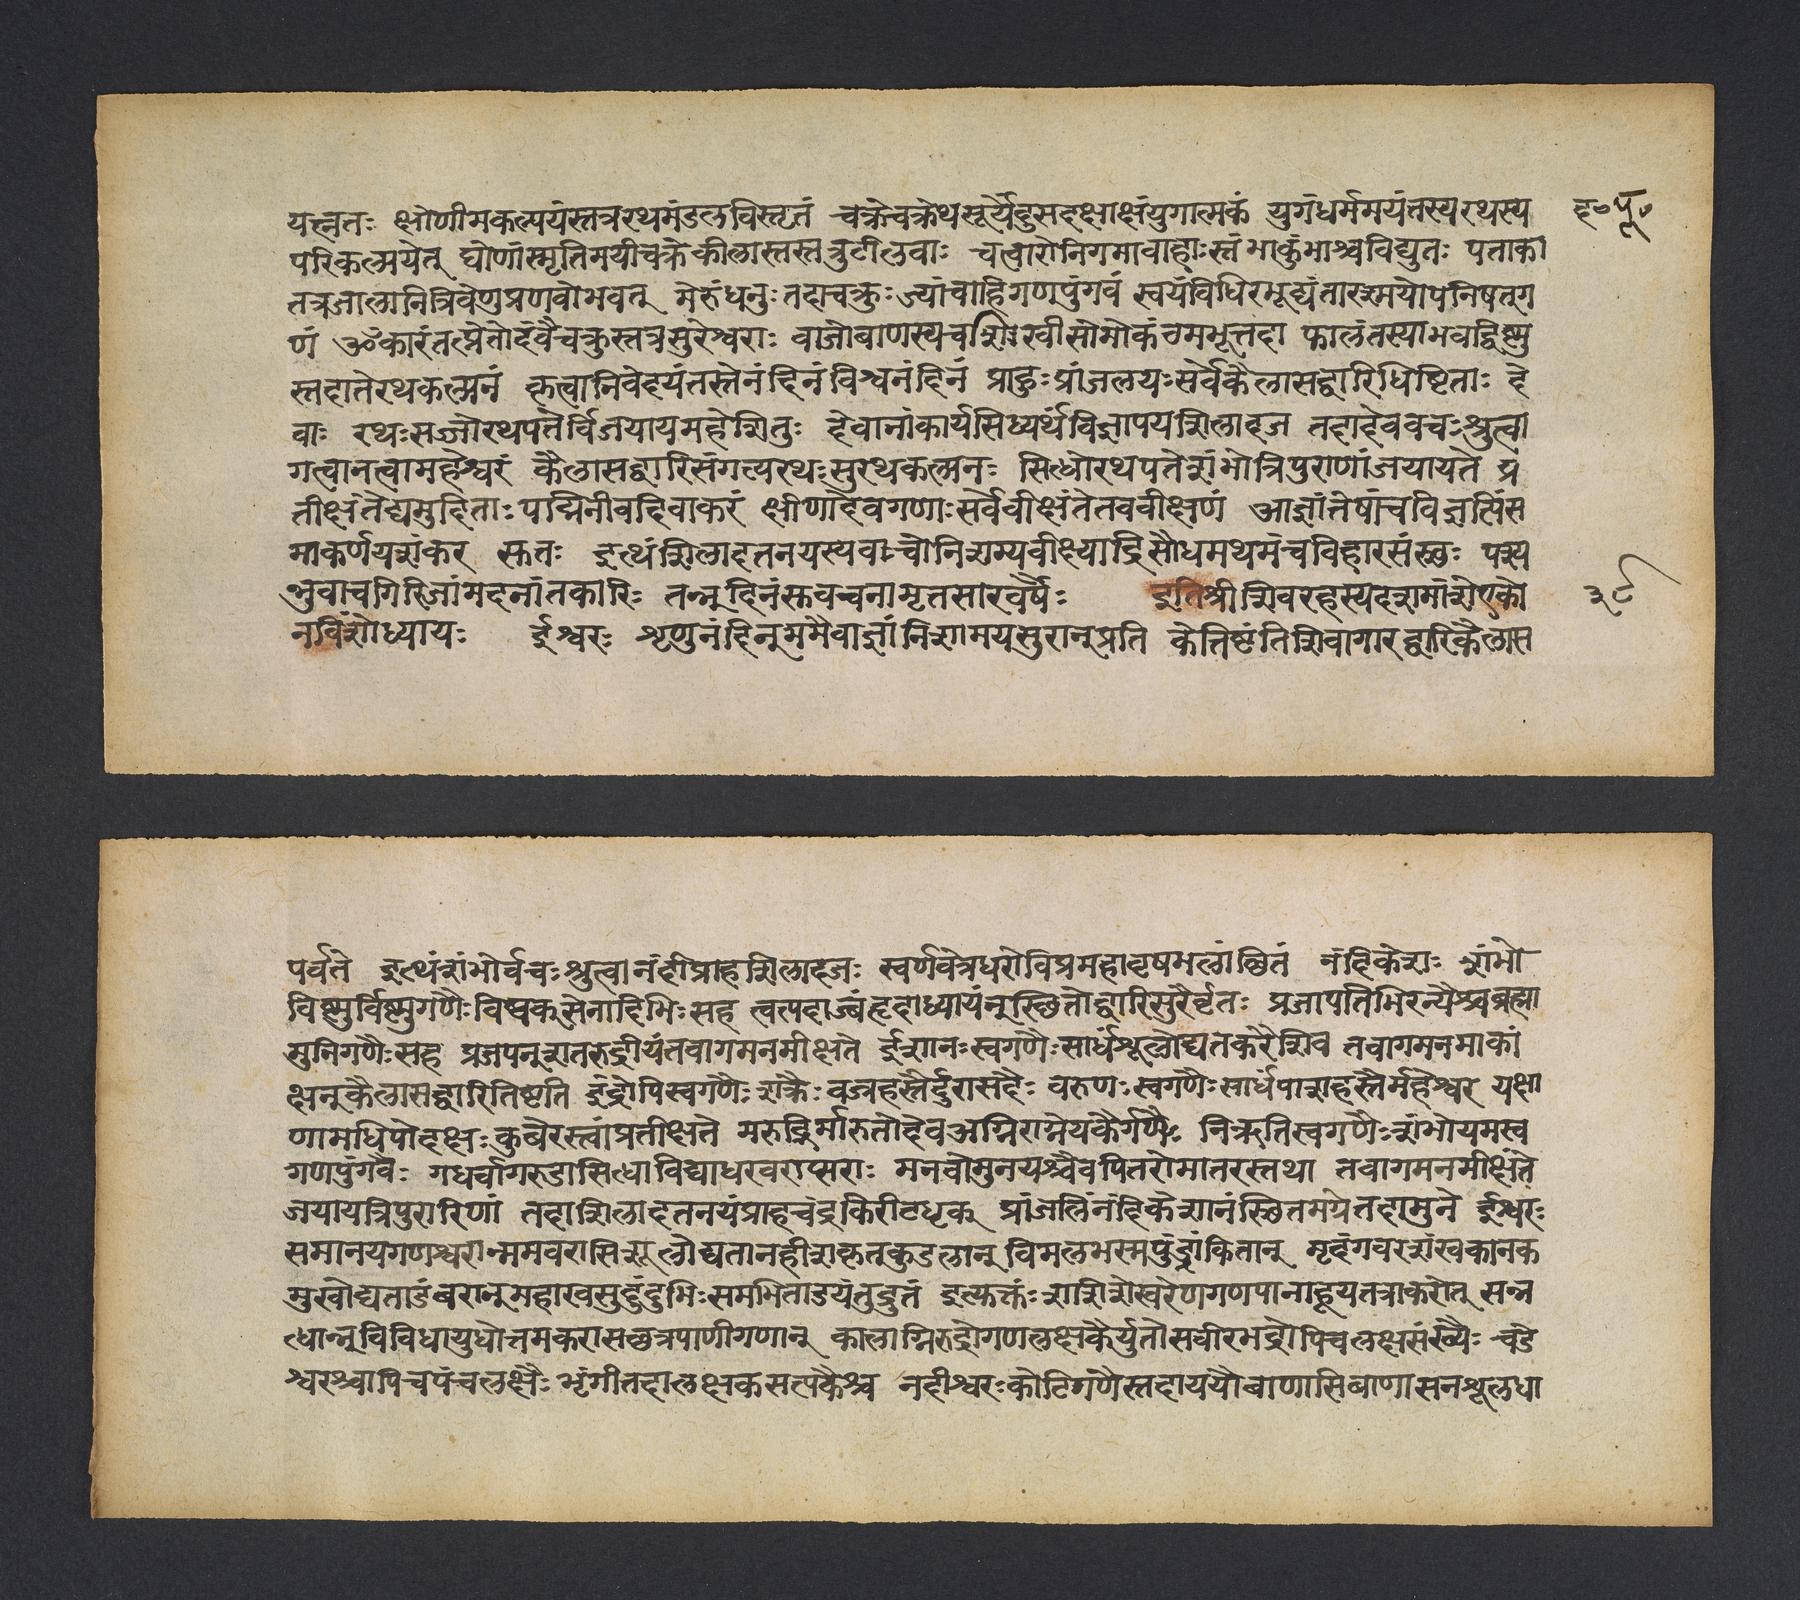 यत्नतः क्षोणीमकल्पयंस्तत्ररथमंडलविस्तृतं चक्रेचक्रेथसूर्येंदुसहक्षाक्षंयुगात्मकं युगंधर्ममयंतस्यरथस्य
ह॰पू॰
परिकल्पयेत् घोणांस्मृतिमयीचक्रेकीलास्तस्तत्रुटीलवाः चत्वारोनिगमावाहाःस्तंभाकुंभाश्चविद्युतः पताका
तत्रजालानित्रिवेणुप्रणवोभवत् मेरुंधनुःतदाचक्रुःज्यांचाहिगणपुंगवं स्वयंविधिरभूद्यंतारश्मयोपनिषत्ग
णं ॐकारंतत्प्रतोदंवैचक्रुस्तत्रसुरेश्वराः वाजोबाणस्यचशिखीसोमोकंठमभूत्तदा फालंतस्याभवद्विष्णु
स्तदातेरथकल्पनं कृत्वानिवेदयंतस्तेनंदिनंविश्वनंदिनं प्राहुःप्रांजलयःसर्वेकैलासद्वारिधिष्टिताः दे
वाः रथःसज्जोरथपतेर्विजयायमहेशितुः देवानांकार्यसिध्यर्थंविज्ञापयशिलादज तदादेववचःश्रुत्वा
गत्वानत्वामहेश्वरं कैलासद्वारिसंगत्यरथःसुरथकल्पनः सिद्धोरथपतेशंभोत्रिपुराणांजयायते प्र
तीक्षंतेद्यमुदिताःपद्मिनीवदिवाकरं क्षीणादेवगणाःसर्वेवीक्षंतेतववीक्षणं आज्ञांतेषांचविज्ञप्तिंस
माकर्णयशंकर स्कतः इत्थंशिलादतनयस्यवाचोनिशम्यवीक्ष्याद्रिसौधमथमंचविहारसंस्थः पत्न्य
भुवाचगिरिजांमदनांतकारिः तन्नुदिनंस्तवचनामृतसारवर्षैः इतिश्रीशिवरहस्यदशमांशेएको
३८
नविंशोध्यायः ईश्वरः शृणुनंदिन्ममैवाज्ञांनिशामयसुरान्प्रति केत्तिष्टंतिशिवागारद्वारिकैलास
पर्वते इत्थंशंभोर्वचःश्रुत्वानंदीप्राहशिलादजः स्वर्णवेत्रधरोविप्रमहावृषभलांछितं नंदिकेशः शंभो
विष्णुर्विष्णुगणैःविष्वक्सेनादिभिःसह त्वत्पदाब्जंहृदाध्यायंन्स्थितोद्वारिसुरैर्वृतः प्रजापतिभिरन्यैश्चब्रह्मा
मुनिगणैःसह प्रजपन्शतरुद्रीयंतवागमनमीक्षते ईशानःस्वगणैःसार्धंशूलोद्यतकरैःशिव तवागमनमाकां
क्षन्कैलासद्वारितिष्टति इंद्रोपिस्वगणैःशक्रैःवज्रहस्तैर्दुरासदैः वरुणःस्वगणैःसार्धंपाशहस्तैर्महेश्वर यक्षा
णामधिपोदक्षःकुबेरस्त्वांप्रतीक्षते मरुद्भिर्मारुतोदेवअग्निराग्नेयकैर्गणैः निऋतिस्वगणैःशंभोयमस्व
गणपुंगवैः गधर्वागरुडासिद्धाविद्याधरवराप्सराः मनवोमुनयश्चैवपितरोमातरस्तथा तवागमनमीक्षंते
जयायत्रिपुरारिणां तदाशिलादतनयंप्राहचंद्रकिरीटधृक् प्रांजलिंनंदिकेशानंस्थितमग्रेतदामुने ईश्वरः
समानयगणश्वरान्ममवरासिशूलोद्यतानहीशकृतकुडलान् विमलभस्मपुंड्रांकितान् मृदंगवरशंखकानक
मुखोद्यताडंबरान्महाखसुदुंदुभिःसमभिताडयंतुद्रुतं इत्युक्तंशशिशेखरेणगणपानाहूयतत्राकरोत् सन्न
धोन्नुविविधायुधोत्तमकरासछत्रपाणीगणान् कालाग्निरुद्रोगणलक्षकैर्युतोसवीरभद्रोपिचलक्षसंख्यैः चडे
श्वरश्चापिचपंचलक्षैःभृंगीतदालक्षकसप्तकैश्च नदीश्वरःकोटिगणैस्तदाययौबाणासिबाणासनशूलधा